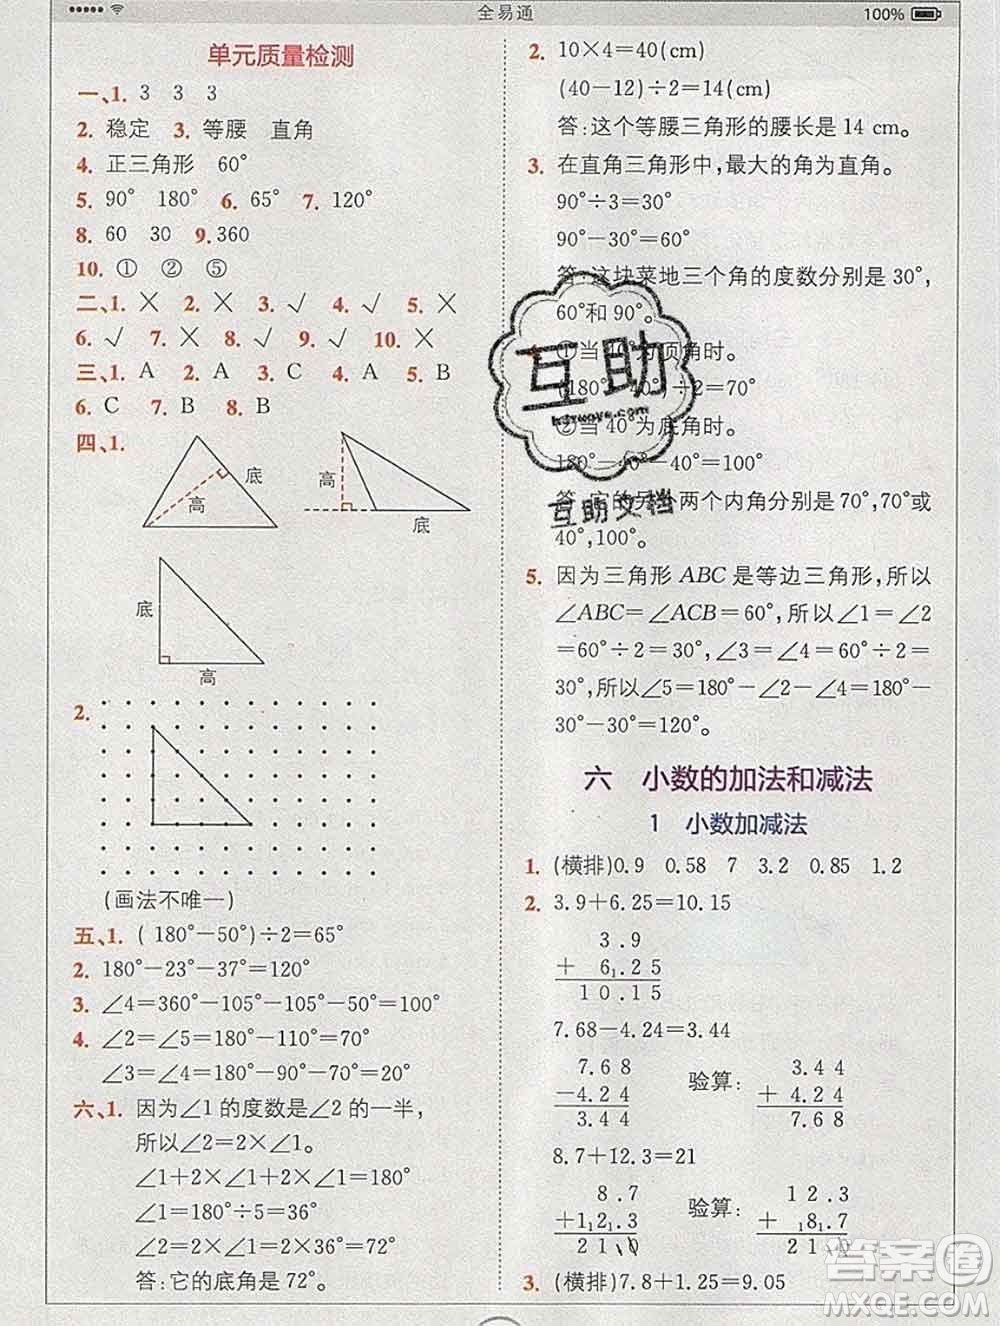 全易通
100%
单元质量检测
一、1. 3 3 3
2. 稳定 3. 等腰 直角
4. 正三角形 60°
5. 90° 180° 6. 65° 7. 120°
8. 60 30 9. 360
10. ① ② ⑤
二、1. ✕ 2. ✕ 3. √ 4. √ 5. ✕
6. √ 7. ✕ 8. √ 9. √ 10. ✕
三、1. A 2. A 3. B 4. A 5. B
6. C 7. B 8. B
四、1.
底
高
高
底
底
高
2.
(画法不唯一)
五、1. (180°-50°)÷2=65°
2. 180°-23°-37°=120°
3. ∠4=360°-105°-105°-50°=100°
4. ∠2=∠5=180°-110°=70°
∠3=∠6=180°-90°-70°=20°
六、1. 因为∠1的度数是∠2的一半,
所以∠2=2×∠1。
∠1+2×∠1+2×∠1=180°
∠1=180°÷5=36°
∠2=2×∠1=2×36°=72°
答:它的底角是72°。
2. 10×4=40(cm)
(40-12)÷2=14(cm)
答:这个等腰三角形的腰长是14 cm。
3. 在直角三角形中,最大的角为直角。
90°÷3=30°
90°-30°=60°
答:这块菜地三个角的度数分别是30°,
60°和90°。
①当40°为顶角时。
(180°-40°)÷2=70°
②当40°为底角时。
180°-40°-40°=100°
答:它的另外两个内角分别是70°,70°或
40°,100°。
5. 因为三角形ABC是等边三角形,所以
∠ABC=∠ACB=60°,所以∠1=∠2
=60°÷2=30°,∠3=∠4=60°÷2=
30°,所以∠5=180°-∠2-∠4=180°-
30°-30°=120°。
六 小数的加法和减法
1 小数加减法
1. (横排)0.9 0.58 7 3.2 0.85 1.2
2. 3.9+6.25=10.15
3.9
+ 6₁.25
10.15
7.68-4.24=3.44
7.68
-4.24
3.44
验算:
3.44
+ 4.24
7.68
8.7+12.3=21
8.7
+1₁2₁.3
21.0
验算:
12.3
+ ₁8₁.7
21.0
3. (横排)7.8+1.25=9.05
互助
互助文档
答案圈
MXQE.COM